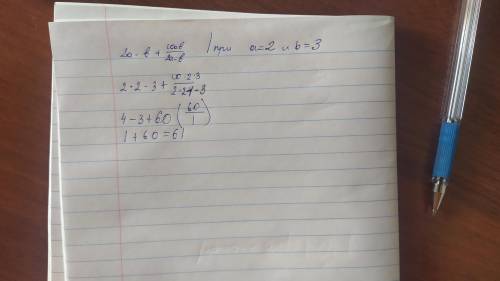 2a - b + 10ab/2a-b | при a=2 и b=3
2·2-3+ 10·2·3/2·2-3
4-3+60 (60/1)
1+60=61